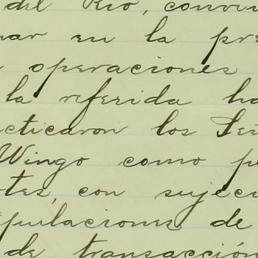 del Rio, convin
nar en la pre
operaciones
la referida ha
acticaron los Señ
Wingo como pe
tes, con sujeci
ipulaciones de
de transacción